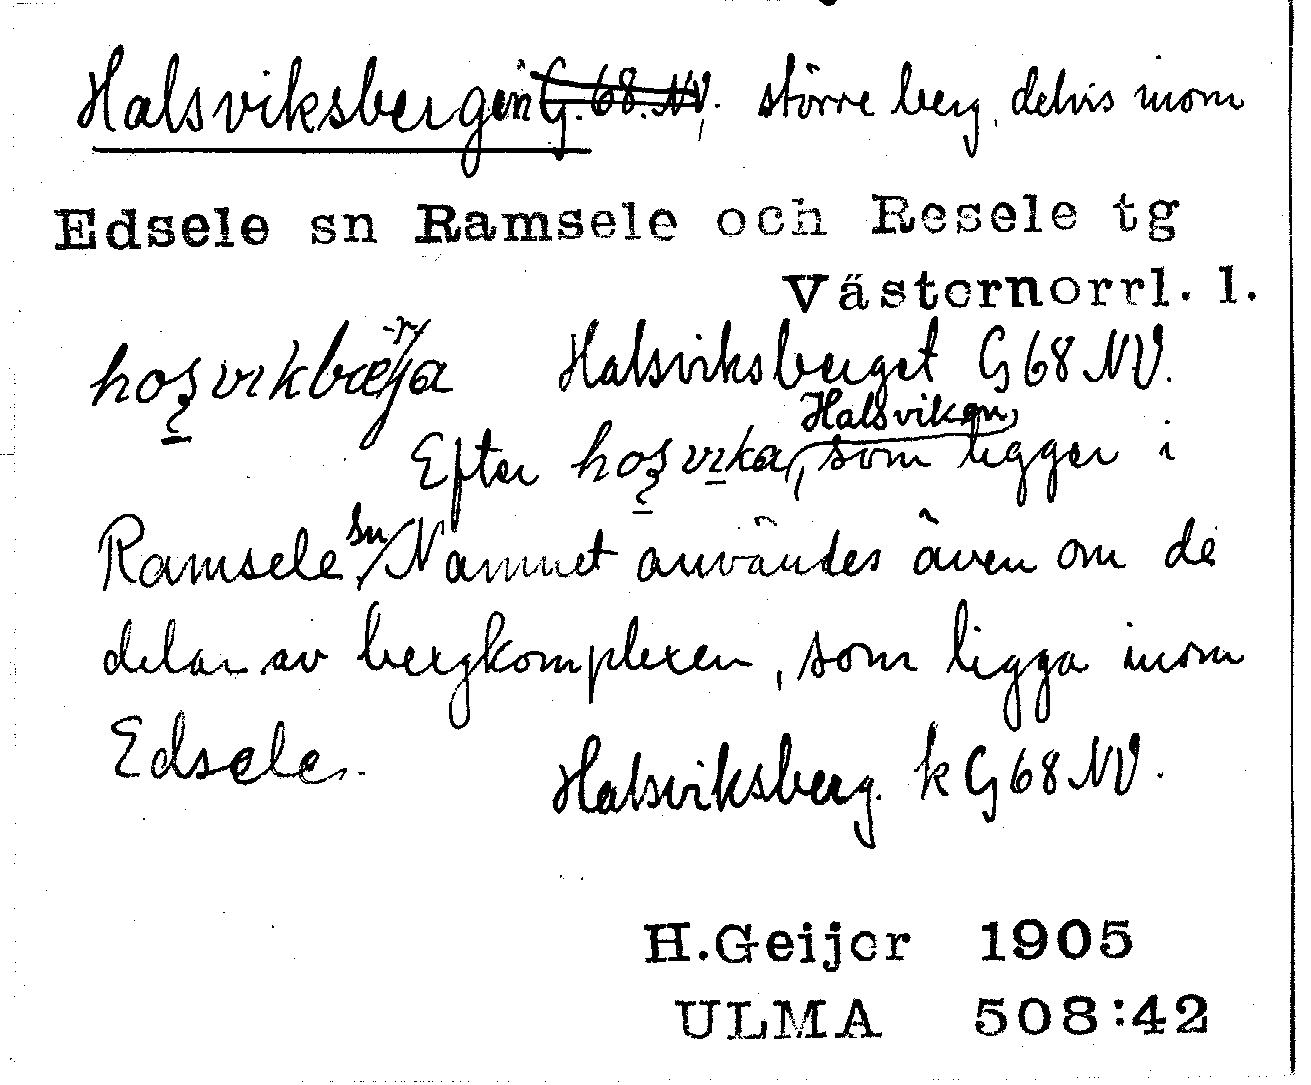 Halsviksbergen G. 68. NV, större berg, delvis inom
Edsele sn Ramsele och Resele tg
Västernorrl. l.
Halsviksberget G 68 NV.
Halsviken
Efter som ligger i
Ramsele sn / Namnet användes även om de
delar av bergkomplexen, som ligga inom
Edsele.
Halsviksberg. k G 68 NV.
H.Geijer 1905
ULMA 508:42